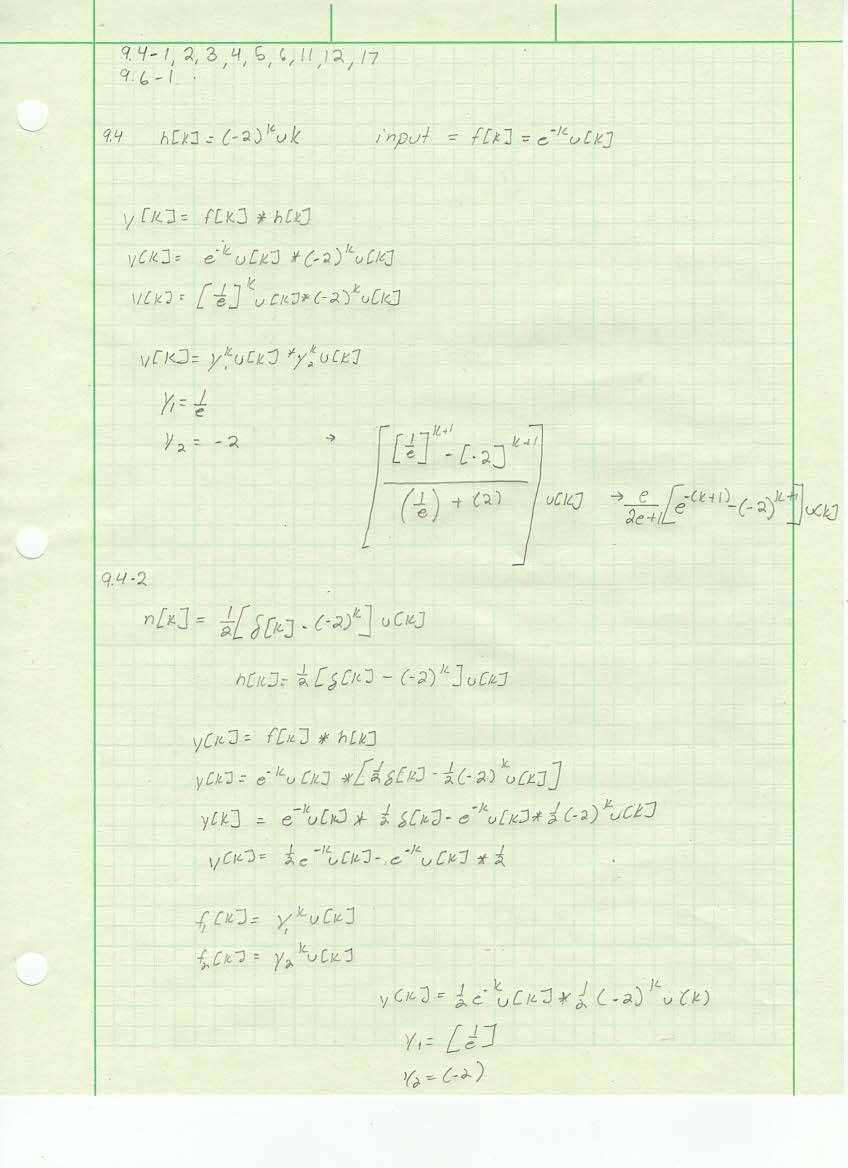 9.4-1, 2, 3, 4, 5, 6, 11, 12, 17
9.6-1
9.4 h[k] = (-2)^k uk input = f[k] = e^-k u[k]
y[k] = f[k] * h[k]
y[k] = e^-k u[k] * (-2)^k u[k]
y[k] = [1/e]^k u[k] * (-2)^k u[k]
y[k] = γ₁^k u[k] * γ₂^k u[k]
γ₁ = 1/e
γ₂ = -2 → [ ([1/e]^k+1 - [-2]^k+1) / ((1/e) + (2)) ] u[k] → e/(2e+1) [e^-(k+1) - (-2)^k+1] u[k]
9.4-2
h[k] = 1/2 [δ[k] - (-2)^k] u[k]
h[k] = 1/2 [δ[k] - (-2)^k] u[k]
y[k] = f[k] * h[k]
y[k] = e^-k u[k] * [1/2 δ[k] - 1/2 (-2)^k u[k]]
y[k] = e^-k u[k] * 1/2 δ[k] - e^-k u[k] * 1/2 (-2)^k u[k]
y[k] = 1/2 e^-k u[k] - e^-k u[k] * 1/2
f₁[k] = γ₁^k u[k]
f₂[k] = γ₂^k u[k]
y[k] = 1/2 e^-k u[k] * 1/2 (-2)^k u(k)
γ₁ = [1/e]
γ₂ = (-2)